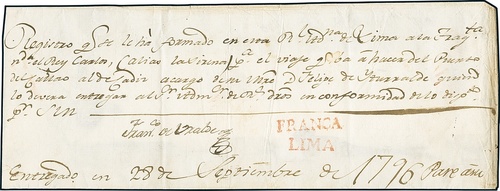 Registro q.e se le há formado en esta R.l Ad.na de Lima a la Frag.ta
el Rey Carlos, (alias) la Sirena p.a el viaje q.e ba á hacer del Puerto
del Callao al de Cadiz a cargo de su Mtre D. Felipe de Yturralde quien
lo devera entregar al S.r Adm.r de R.s dros en conformidad de lo disp.to
p.r S.M
Fran.co de Ugalde
FRANCA
LIMA
Entregado en 28 de Septiembre de 1796